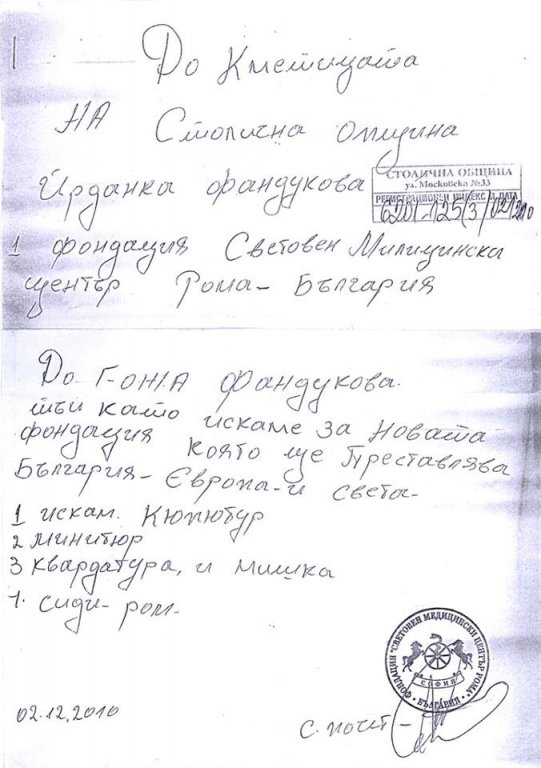 До Кметицата
НА Столична опщина
Йрданка фандукова
СТОЛИЧНА ОБЩИНА
ул. Московска №33
РЕГИСТРАЦИОНЕН ИНДЕКС И ДАТА
1 фондация Световен Милицински
център Рома - България
До Г-ОЖА фандукова.
тъй като искаме за новата
фондация която ще Преставлява
България - Европа - и света -
1 искам. Кюпютур
2 минитюр
3 квардатура, и мишка
4. сиди - ром -
ФОНДАЦИЯ "СВЕТОВЕН МЕДИЦИНСКИ ЦЕНТЪР РОМА" - БЪЛГАРИЯ
СОФИЯ
02.12.2010
с. почит -